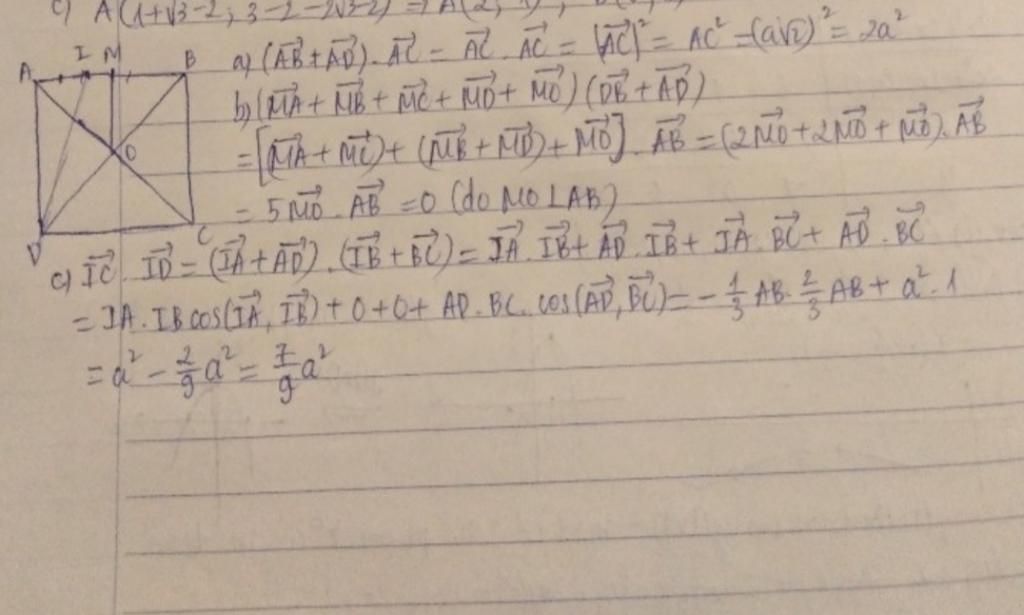 c) A(1+√3-2; 3-2-2√3-2) ⇒ A(2;
A I M B
O
D C
a) (AB⃗ + AD⃗) . AC⃗ = AC⃗ . AC⃗ = |AC⃗|² = AC² = (a√2)² = 2a²
b) (MA⃗ + MB⃗ + MC⃗ + MD⃗ + MO⃗) (DB⃗ + AD⃗)
= [(MA⃗ + MC⃗) + (MB⃗ + MD⃗) + MO⃗] . AB⃗ = (2MO⃗ + 2MO⃗ + MO⃗) . AB⃗
= 5MO⃗ . AB⃗ = 0 (do MO ⊥ AB)
c) IC⃗ . ID⃗ = (IA⃗ + AD⃗) . (IB⃗ + BC⃗) = IA⃗ . IB⃗ + AD⃗ . IB⃗ + IA⃗ . BC⃗ + AD⃗ . BC⃗
= IA . IB cos(IA⃗, IB⃗) + 0 + 0 + AD . BC . cos(AD⃗, BC⃗) = - 1/3 AB . 2/3 AB + a² . 1
= a² - 2/9 a² = 7/9 a²